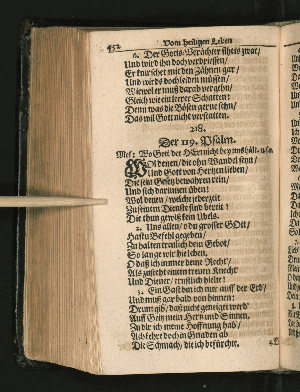 452 Vom heiligen Leben
6. Der Gotts-Verächter sihets zwar/
Und wird ihn doch verdriessen/
Er knirschet mit den Zähnen gar/
Und wirds doch leiden müssen/
Wie wol er muß darab vergehn/
Gleich wie ein leerer Schatten:
Denn was die Bösen gerne sehn/
Das wil Gott nicht verstatten.
218.
Der 119. Psalm.
Mel: Wo Gott der HErr nicht bey uns hält. u.a.
Wol denen/ die ohn Wandel seyn/
Und Gott von Hertzen lieben/
Die sein Gesetz bewahren rein/
Und sich darinnen üben!
Wol denen/ welche jederzeit
Zu seinem Dienste sind bereit!
Die thun gewiß kein Übels.
2. Uns allen/ o du grosser GOtt/
Hastu Befehl gegeben/
Zu halten treulich dein Gebot/
So lange wir hie leben.
O daß ich immer deine Recht/
Als ziehet einem treuen Knecht
Und Diener/ ernstlich hielte!
3. Ein Gast bin ich nur auff der Erd/
Und muß gar bald von hinnen:
Drum gib/ daß nicht geneiget werd
Auff Geitz mein Hertz und Sinnen,
Zu dir ich meine Hoffnung hab/
Ach kehre doch in Gnaden ab
Die Schmach/ die ich befürchte.